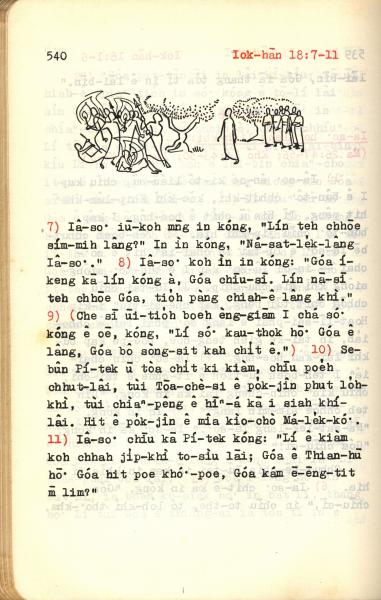 540
Iok-hān 18:7-11
7) Iâ-so͘ iū-koh mn̄g in kóng, "Lín teh chhōe
sím-mih lâng?" In ìn kóng, "Ná-sat-le̍k-lâng
Iâ-so͘." 8) Iâ-so͘ koh ìn in kóng: "Góa í-
keng kā lín kóng à, Góa chiū-sī. Lín nā-sī
teh chhōe Góa, tio̍h pàng chiah-ê lâng khì."
9) (Che sī ūi-tio̍h boeh èng-giām I chá só͘
kóng ê oē, kóng, "Lí só͘ kau-thok hō͘ Góa ê
lâng, Góa bô sòng-sit kah chi̍t ê.") 10) Se-
bûn Pí-tek ū tòa chi̍t ki kiàm, chiū poe̍h
chhut-lâi, tùi Tōa-chè-si ê po̍k-jîn phut lo̍h-
khì, tùi chiàⁿ-pêng ê hīⁿ-á kā i siah khí-
lâi. Hit ê po̍k-jîn ê miâ kiò-chò Má-le̍k-kó͘.
11) Iâ-so͘ chiū kā Pí-tek kóng: "Lí ê kiàm
koh chhah ji̍p-khì to-siù lāi; Góa ê Thian-hū
hō͘ Góa hit poe khó͘-poe, Góa kám ē-ēng-tit
m̄ lim?"